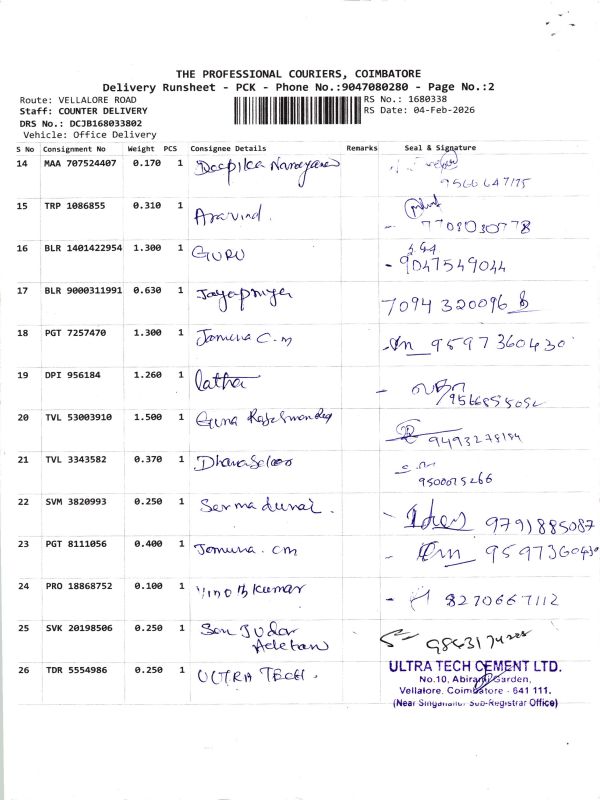 THE PROFESSIONAL COURIERS, COIMBATORE
Delivery Runsheet - PCK - Phone No.:9047080280 - Page No.:2
Route: VELLALORE ROAD
Staff: COUNTER DELIVERY
DRS No.: DCJB168033802
Vehicle: Office Delivery
RS No.: 1680338
RS Date: 04-Feb-2026
S No Consignment No Weight PCS Consignee Details Remarks Seal & Signature
14 MAA 707524407 0.170 1 Deepika Narayanan 9566647175
15 TRP 1086855 0.310 1 Aravind. 7708030778
16 BLR 1401422954 1.300 1 GURU - 9047549044
17 BLR 9000311991 0.630 1 Jayapriya 7094320096
18 PGT 7257470 1.300 1 Jamuna C.m 9597360430
19 DPI 956184 1.260 1 latha - லதா
20 TVL 53003910 1.500 1 Guna
21 TVL 3343582 0.370 1 9500075266
22 SVM 3820993 0.250 1 - 9791885087
23 PGT 8111056 0.400 1 Jamuna. cm - 9597360430
24 PRO 18868752 0.100 1 Vinoth kumar - 8270667112
25 SVK 20198506 0.250 1
26 TDR 5554986 0.250 1 ULTRA TECH.
ULTRA TECH CEMENT LTD.
No.10, Abirami Garden,
Vellalore, Coimbatore - 641 111.
(Near Singanallur Sub-Registrar Office)